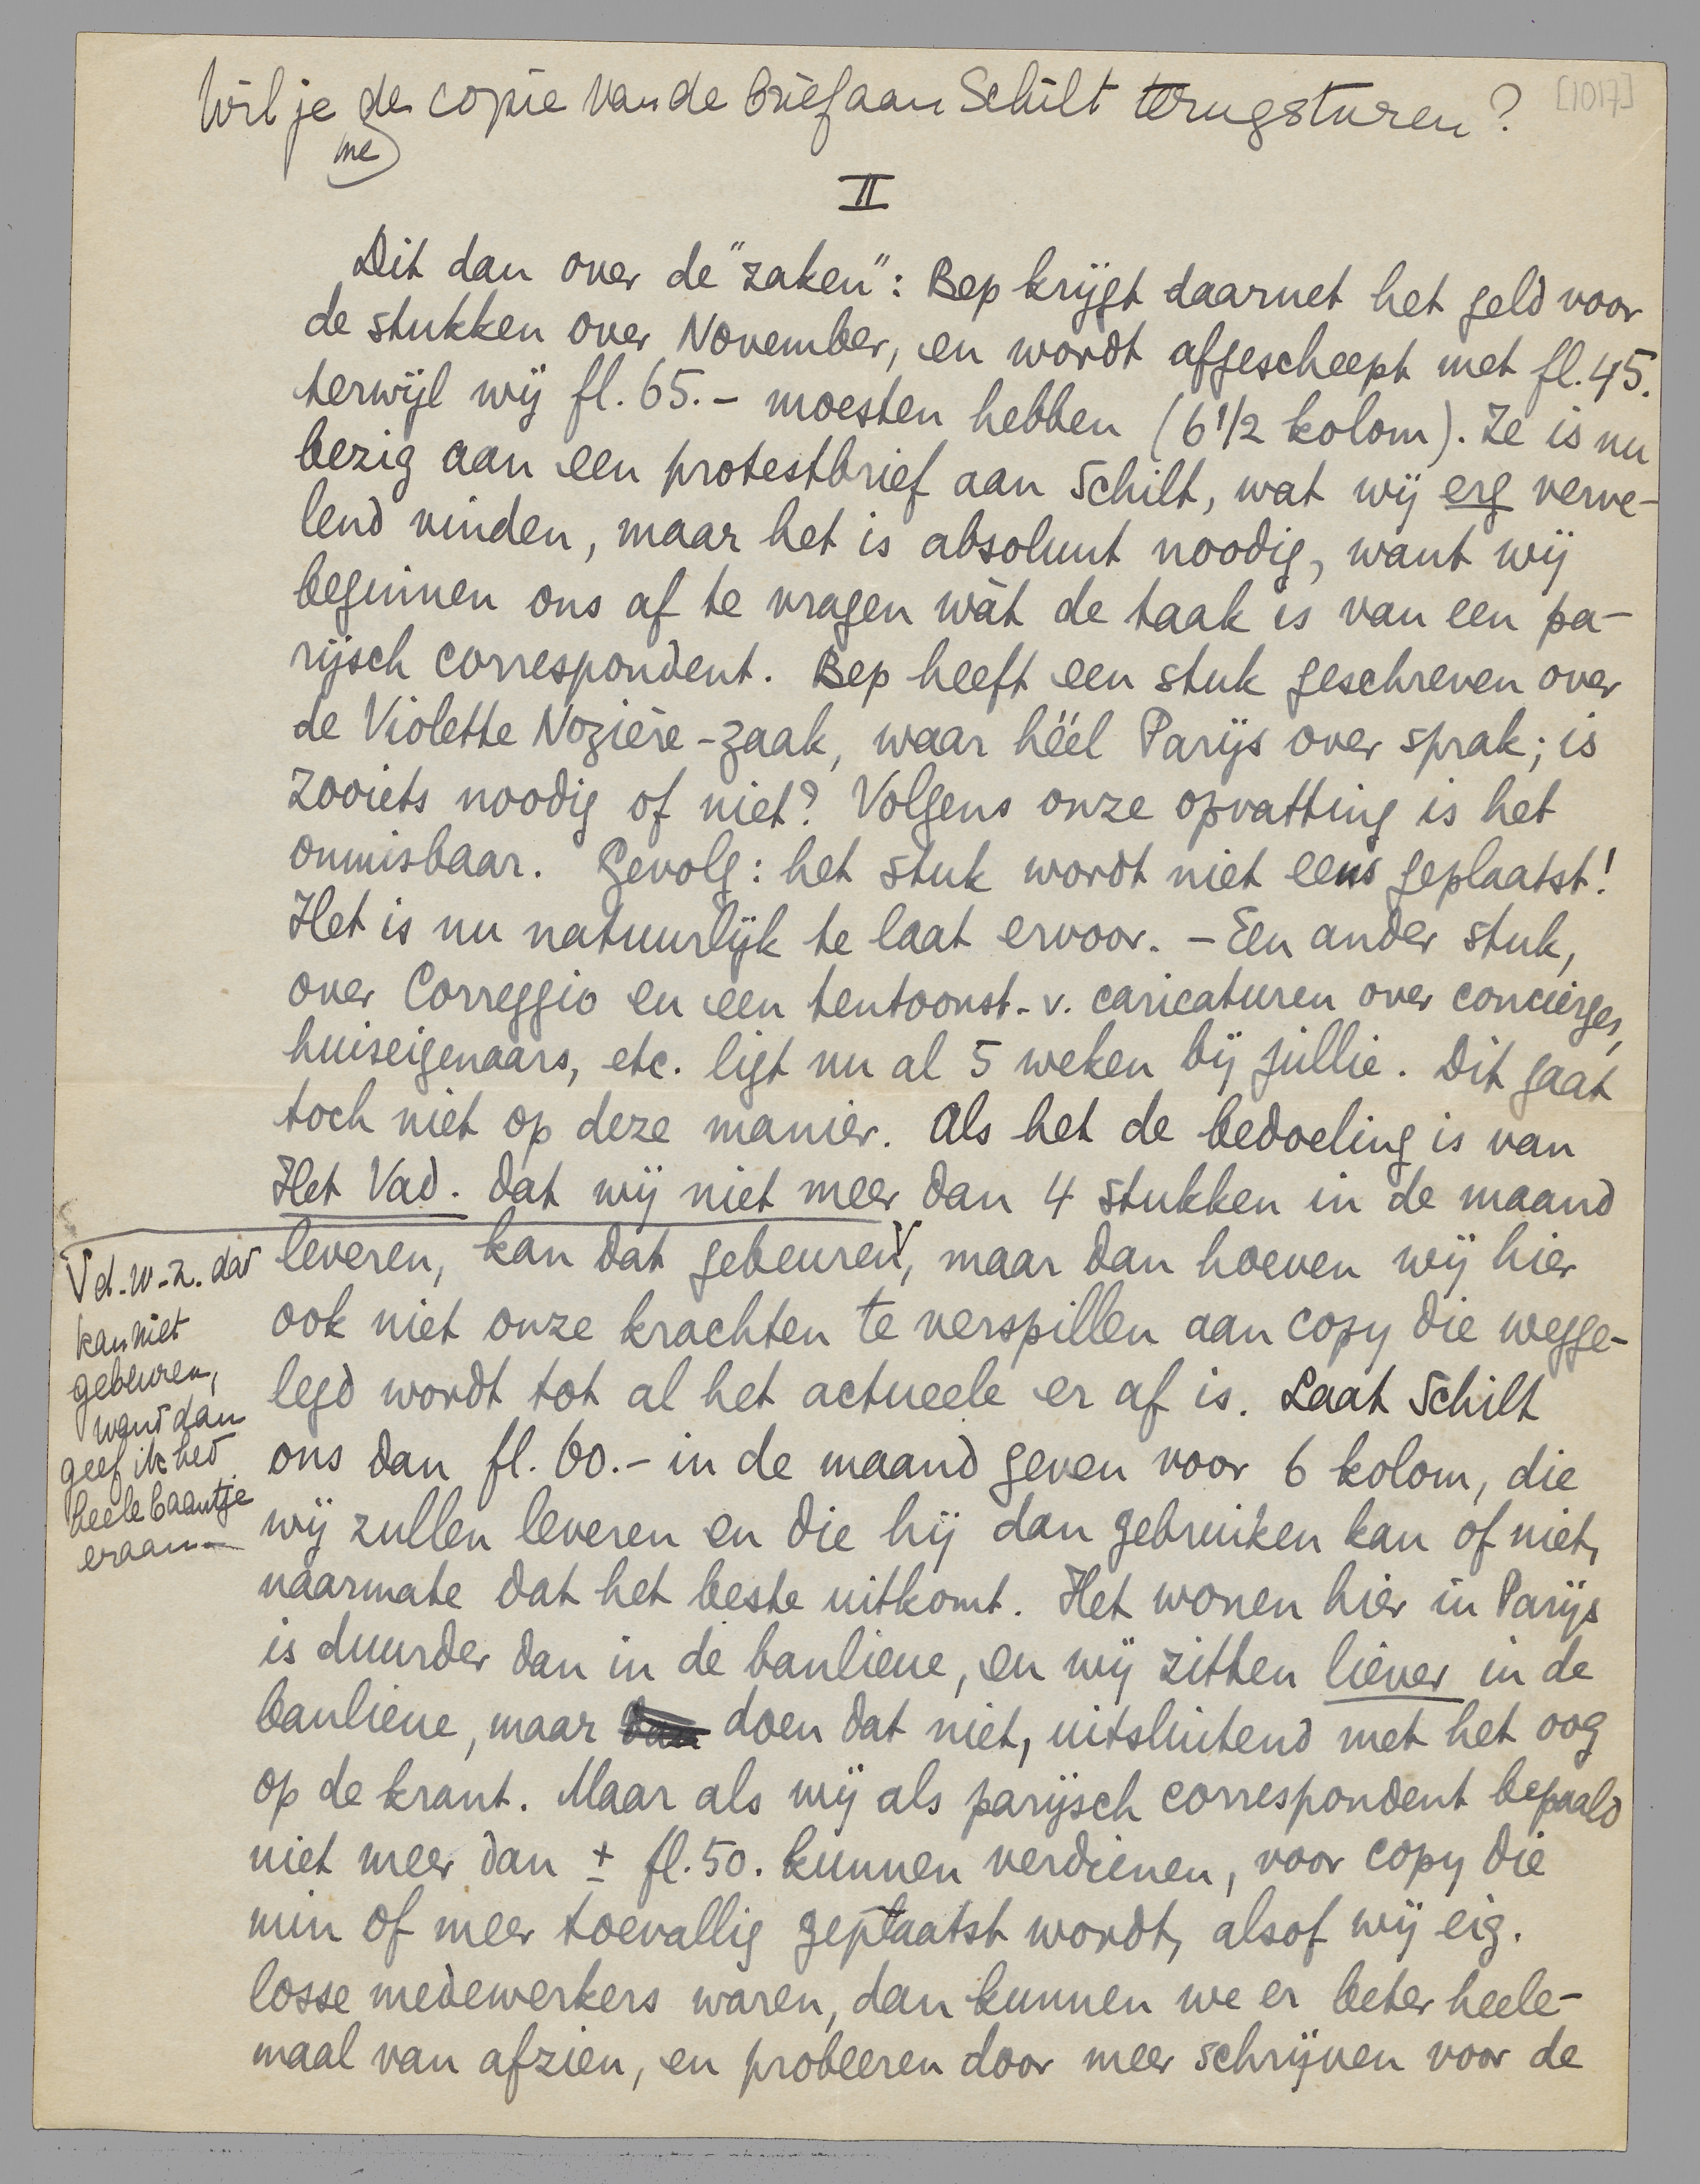 Wil je de copie van de brief aan Schilt terugsturen?
[1017]
me
II
Dit dan over de "zaken": Bep krijgt daarnet het geld voor
de stukken over November, en wordt afgescheept met fl. 45.
terwijl wij fl. 65.- moesten hebben (6 1/2 kolom). Ze is nu
bezig aan een protestbrief aan Schilt, wat wij erg verve-
lend vinden, maar het is absoluut noodig, want wij
beginnen ons af te vragen wàt de taak is van een pa-
rijsch correspondent. Bep heeft een stuk geschreven over
de Violette Nozière-zaak, waar héél Parijs over sprak; is
zooiets noodig of niet? Volgens onze opvatting is het
onmisbaar. Gevolg: het stuk wordt niet eens geplaatst!
Het is nu natuurlijk te laat ervoor. - Een ander stuk,
over Correggio en een tentoonst. v. caricaturen over concierges,
huiseigenaars, etc. ligt nu al 5 weken bij jullie. Dit gaat
toch niet op deze manier. Als het de bedoeling is van
Het Vad. dat wij niet meer dan 4 stukken in de maand
leveren, kan dat gebeuren V, maar dan hoeven wij hier
ook niet onze krachten te verspillen aan copy die wegge-
legd wordt tot al het actueele er af is. Laat Schilt
ons dan fl. 60.- in de maand geven voor 6 kolom, die
wij zullen leveren en die hij dan gebruiken kan of niet,
naarmate dat het beste uitkomt. Het wonen hier in Parijs
is duurder dan in de banlieue, en wij zitten liever in de
banlieue, maar doen dat niet, uitsluitend met het oog
op de krant. Maar als wij als parijsch correspondent bepaald
niet meer dan ± fl. 50. kunnen verdienen, voor copy die
min of meer toevallig geplaatst wordt, alsof wij eig.
losse medewerkers waren, dan kunnen we er beter heele-
maal van afzien, en probeeren door meer schrijven voor de
V d.w.z. dat
kan niet
gebeuren,
want dan
geef ik het
heele baantje
eraan.-